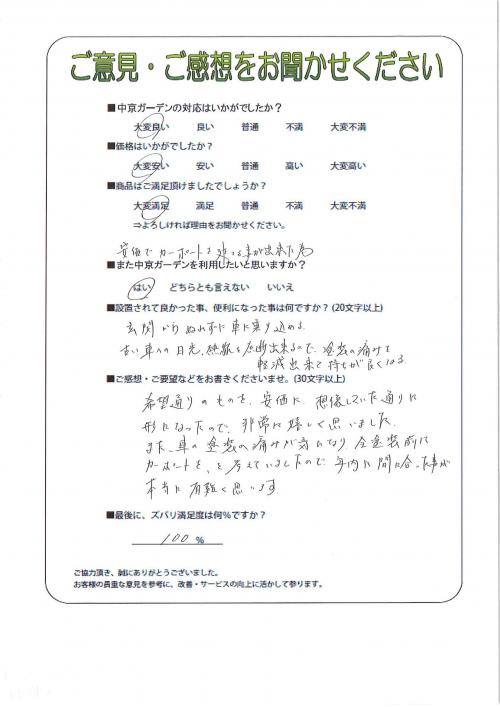 ご意見・ご感想をお聞かせください
■中京ガーデンの対応はいかがでしたか？
大変良い 良い 普通 不満 大変不満
■価格はいかがでしたか？
大変安い 安い 普通 高い 大変高い
■商品はご満足頂けましたでしょうか？
大変満足 満足 普通 不満 大変不満
⇒よろしければ理由をお聞かせください。
安価でカーポートを建てる事が出来た為
■また中京ガーデンを利用したいと思いますか？
はい どちらとも言えない いいえ
■設置されて良かった事、便利になった事は何ですか？(20文字以上)
玄関からぬれずに車に乗り込める。
古い車への日光、を遮断出来るので、塗装の痛みを
軽減出来て持ちが良くなる
■ご感想・ご要望などをお書きくださいませ。(30文字以上)
希望通りのものを、安価に、想像していた通りに
形になったので、非常に嬉しく思いました。
また、車の塗装の痛みが気になり全塗装前に
カーポートを、と考えていましたので年内に間に合った事が
本当に有難く思います。
■最後に、ズバリ満足度は何％ですか？
100 %
ご協力頂き、誠にありがとうございました。
お客様の貴重な意見を参考に、改善・サービスの向上に活かして参ります。